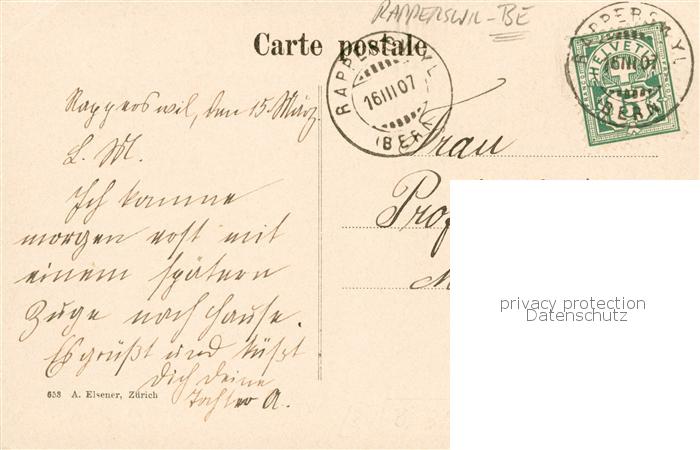 RAPPERSWIL-BE
Carte postale
RAPPERSWYL
16III07
(BERN)
RAPPERSWYL
HELVETIA
16III07
(BERN)
Rapperswil, den 15. März.
L. M.
Ich komme
morgen erst mit
einem spätern
Zuge nach Hause.
Es grüßt und küßt
Dich Deine
Tochter A.
Frau
Prof
privacy protection
Datenschutz
653 A. Elsener, Zürich